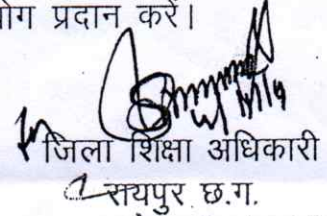 प्रदान करें।
जिला शिक्षा अधिकारी
रायपुर छ.ग.